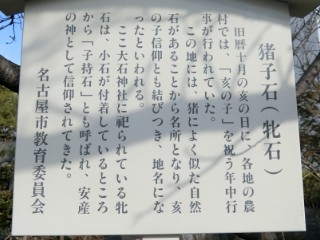 猪子石(牝石)
旧暦十月の亥の日に、各地の農
村では、「亥の子」を祝う年中行
事が行われていた。
この地には、猪によく似た自然
石があることから名所となり、亥
の子信仰とも結びつき、地名にな
ったといわれる。
ここ大石神社に祀られている牝
石は、小石が付着しているところ
から「子持石」とも呼ばれ、安産
の神として信仰されてきた。
名古屋市教育委員会